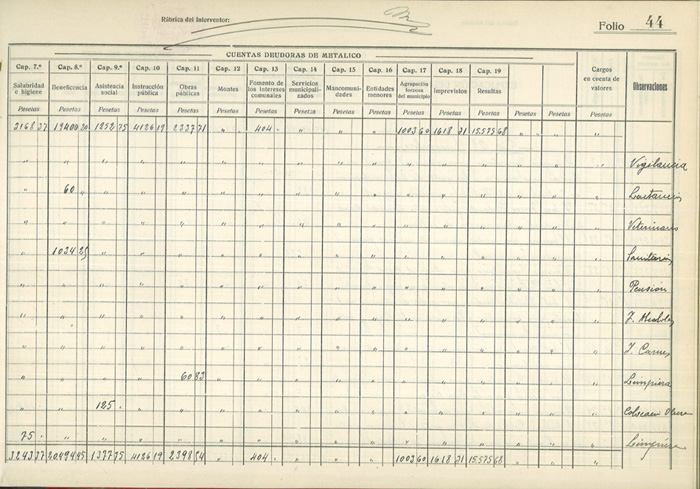 Rúbrica del Interventor:
Folio 44
CUENTAS DEUDORAS DE METALICO
Cap. 7.º Cap. 8.º Cap. 9.º Cap. 10 Cap. 11 Cap. 12 Cap. 13 Cap. 14 Cap. 15 Cap. 16 Cap. 17 Cap. 18 Cap. 19 Cargos en cuenta de valores Observaciones
Salubridad e higiene Beneficencia Asistencia social Instrucción pública Obras públicas Montes Fomento de los intereses comunales Servicios municipalizados Mancomunidades Entidades menores Agrupación forzosa del municipio Imprevistos Resultas
Pesetas Pesetas Pesetas Pesetas Pesetas Pesetas Pesetas Pesetas Pesetas Pesetas Pesetas Pesetas Pesetas Pesetas Pesetas
3168 37 19400 20 1252 75 4126 19 2337 71 " 404 - " " " 1003 60 1618 31 15575 68 " " "
" " " " " " " " " " " " " " " Vigilancia
" 60 " " " " " " " " " " " " " Lactancia
" " " " " " " " " " " " " " " Veterinario
" 1034 25 " " " " " " " " " " " " "
" " " " " " " " " " " " " " " Pension
" " " " " " " " " " " " " " "
" " " " " " " " " " " " " " " J. Carnes
" " " " 60 83 " " " " " " " " " " Limpieza
" " 125 - " " " " " " " " " " " "
75 - " " " " " " " " " " " " " " Limpieza
3243 37 20494 45 1377 75 4126 19 2398 54 " 404 - " " " 1003 60 1618 31 15575 68 " " "